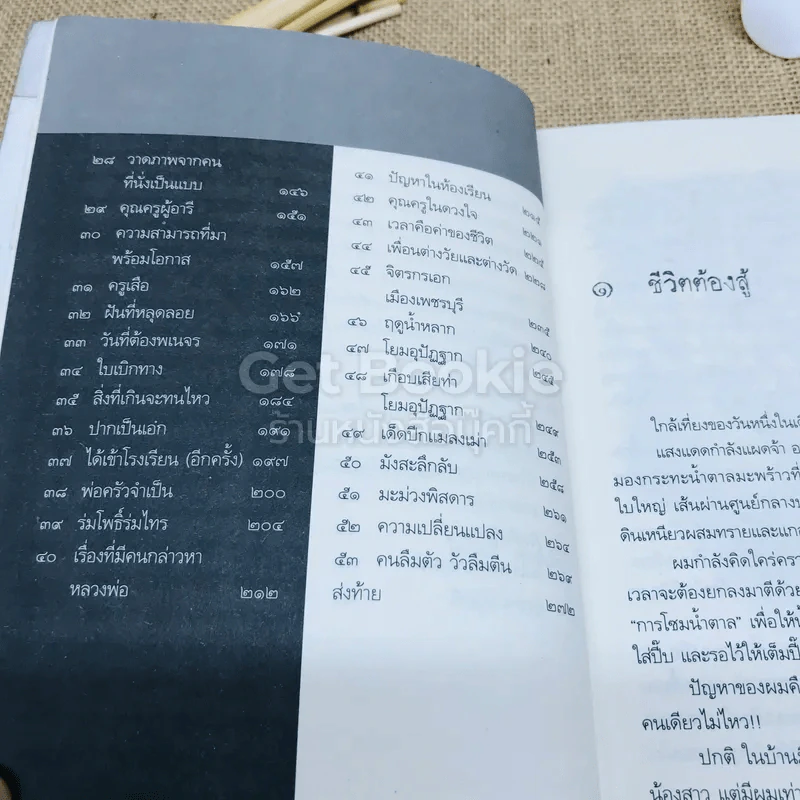 ๒๘ วาดภาพจากคน
ที่นั่งเป็นแบบ ๑๔๖
๒๙ คุณครูผู้อารี ๑๕๑
๓๐ ความสามารถที่มา
พร้อมโอกาส ๑๕๗
๓๑ ครูเสือ ๑๖๒
๓๒ ฝันที่หลุดลอย ๑๖๖
๓๓ วันที่ต้องพเนจร ๑๗๑
๓๔ ใบเบิกทาง ๑๗๘
๓๕ สิ่งที่เกินจะทนไหว ๑๘๔
๓๖ ปากเป็นเอก ๑๙๑
๓๗ ได้เข้าโรงเรียน (อีกครั้ง) ๑๙๗
๓๘ พ่อครัวจำเป็น ๒๐๐
๓๙ ร่มโพธิ์ร่มไทร ๒๐๔
๔๐ เรื่องที่มีคนกล่าวหา
หลวงพ่อ ๒๑๒
๔๑ ปัญหาในห้องเรียน ๒๑๕
๔๒ คุณครูในดวงใจ ๒๒๑
๔๓ เวลาคือค่าของชีวิต ๒๒๕
๔๔ เพื่อนต่างวัยและต่างวัด ๒๒๘
๔๕ จิตรกรเอก
เมืองเพชรบุรี ๒๓๕
๔๖ ฤดูน้ำหลาก ๒๔๐
๔๗ โยมอุปัฏฐาก
๔๘ เกือบเสียท่า
โยมอุปัฏฐาก ๒๔๙
๔๙ เด็ดปีกแมลงเม่า ๒๕๓
๕๐ มังสะลึกลับ ๒๕๘
๕๑ มะม่วงพิสดาร ๒๖๑
๕๒ ความเปลี่ยนแปลง ๒๖๔
๕๓ คนลืมตัว วัวลืมตีน ๒๖๙
ส่งท้าย ๒๗๒
Get Bookie
ร้านหนังสือบุ๊คกี้
๑) ชีวิตต้องสู้
ใกล้เที่ยงของวันหนึ่งใน
แสงแดดกำลังแผดจ้า
มองกระทะน้ำตาลมะพร้าวที่
ใบใหญ่ เส้นผ่านศูนย์กลาง
ดินเหนียวผสมทรายและ
ผมกำลังคิดใคร่
เวลาจะต้องยกลงมาตีด้วย
“การโซมน้ำตาล” เพื่อให้
ใส่ปี๊บ และรอไว้ให้เต็มปี๊
ปัญหาของผมคื
คนเดียวไม่ไหว!!
ปกติ ในบ้าน
น้องสาว แต่มีผมเท่า